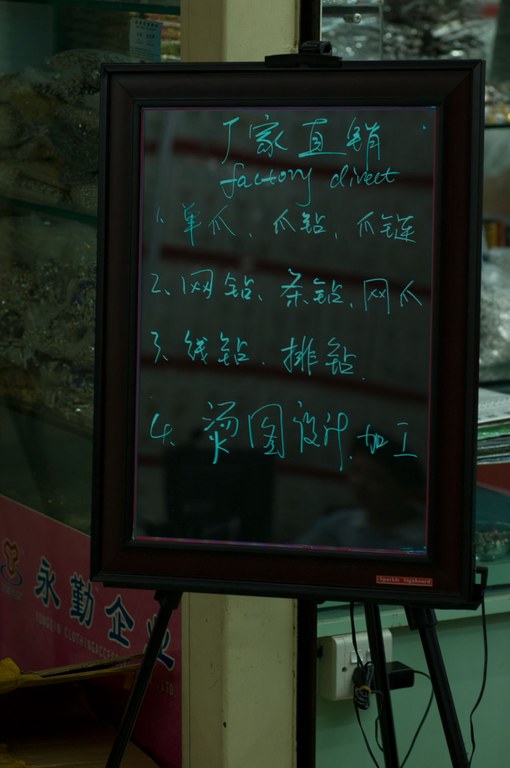 厂家直销
factory divect
1. 单爪、爪钻、爪链
2、网钻、条钻、网爪
3、线钻、排钻.
4. 烫图设计.加工
Sparkle Signboard
永勤企业